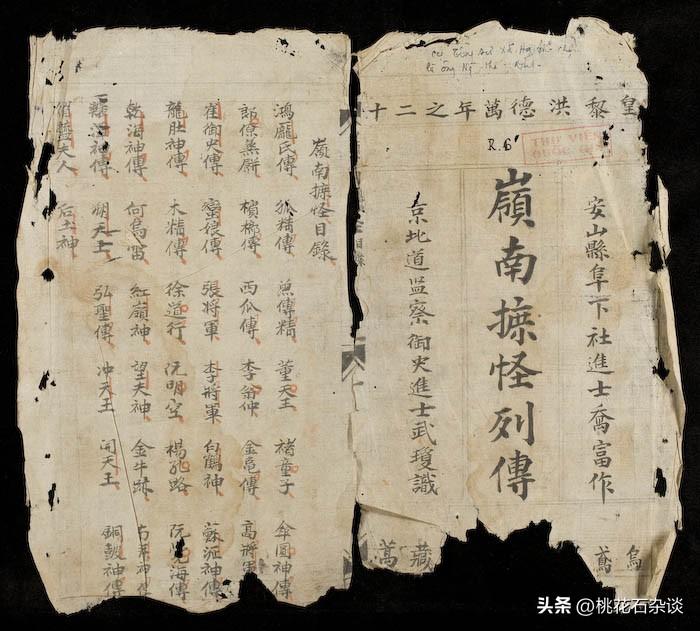 皇黎洪德萬年之二十
R. 6
THU VIEN
安山縣阜下社進士喬富作
嶺南摭怪列傳
京北道监察御史進士武瓊識
鳶
藏萬
嶺南摭怪目錄
鴻龐氏傳 狐精傳 魚傳精 董天王 褚童子 傘圓神傳
郎僚蒸餅 檳榔傳 西瓜傳 李翁仲 金龜傳 高將軍
崔御史傳 蠻娘傳 張將軍 李將軍 白鶴神 蘇泒神傳
龍肚神傳 木精傳 徐道行 阮明空 楊孔路 阮覺海傳
乾海神傳 何烏雷 紅嶺神 望夫神 金牛跡
神傳 朔天王 弘聖傳 冲天王 開天王 銅皷神傳
夫人 后土神
头条 @桃花石杂谈